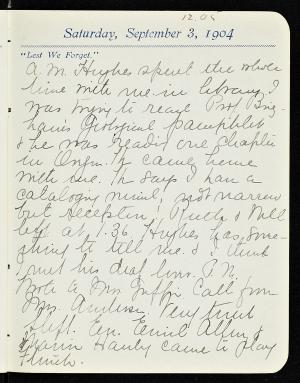 12.05
Saturday, September 3, 1904
"Lest We Forget."
A.M. Hughes spent the whole
time with me in library. I
was trying to read Prof. Brig-
ham's Geological pamphlet
& he was reading one chapter
in Origin. Th. came home
with me. Th. says I have a
cataloging mind, not narrow
but
left at 1.36. Hughes has some-
thing to tell me. & I think
I put his P.M.
Wrote to Mrs. Griffin. Call from
Mrs. Very tired
left. Ev. Emil Allen &
Marin Hanly came to play
Flinch.